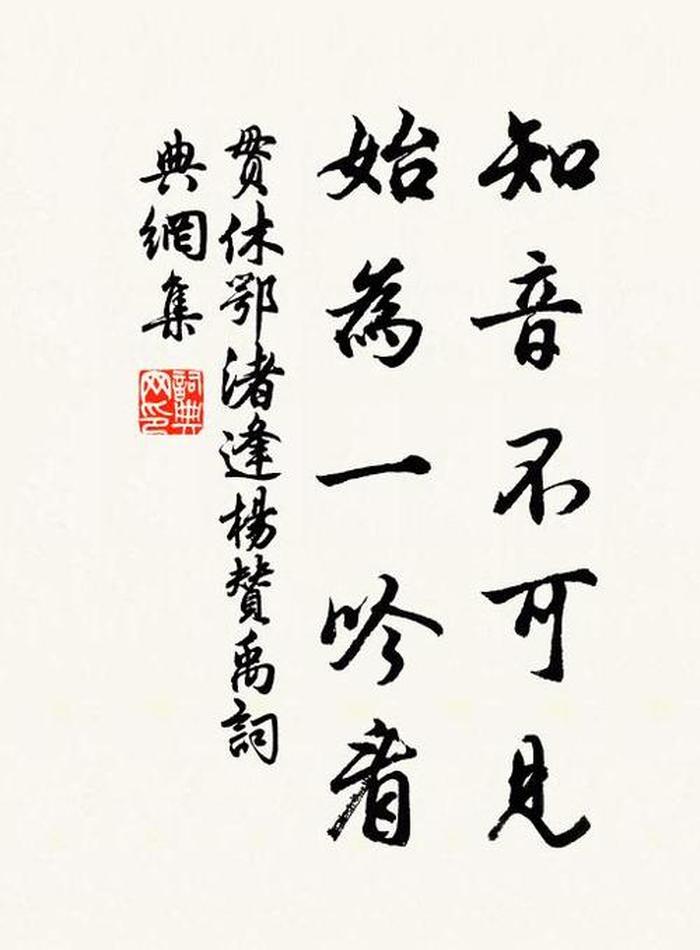 知音不可見
始為一吟看
貫休鄂渚逢楊贊禹詞
典網集
詞典
网印